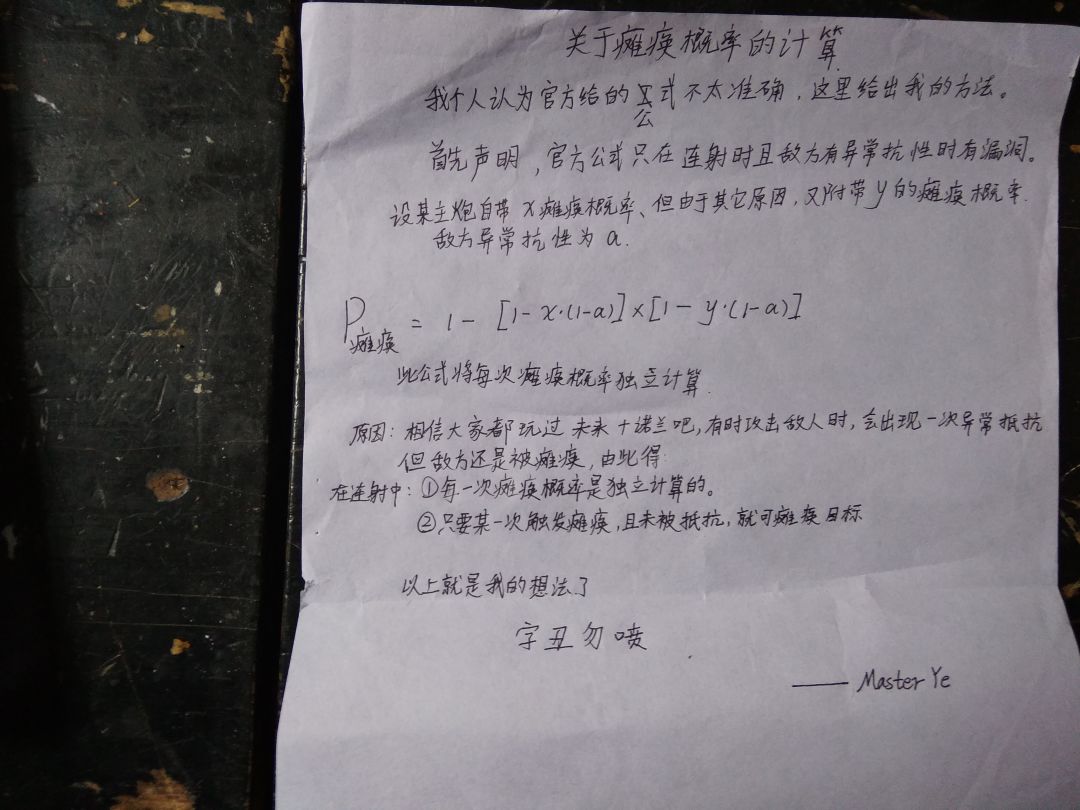 关于瘫痪概率的计算
我个人认为官方给的公式不太准确，这里给出我的方法。
首先声明，官方公式只在连射时且敌方有异常抗性时有漏洞。
设某主炮自带x瘫痪概率、但由于其它原因，又附带y的瘫痪概率.
敌方异常抗性为a.
P瘫痪 = 1- [1-x·(1-a)]×[1-y·(1-a)]
此公式将每次瘫痪概率独立计算.
原因：相信大家都玩过未来十诺兰吧，有时攻击敌人时，会出现一次异常抵抗
但敌方还是被瘫痪，由此得：
在连射中：①每一次瘫痪概率是独立计算的。
②只要某一次触发瘫痪，且未被抵抗，就可瘫痪目标
以上就是我的想法了
字丑勿喷
—— Master Ye